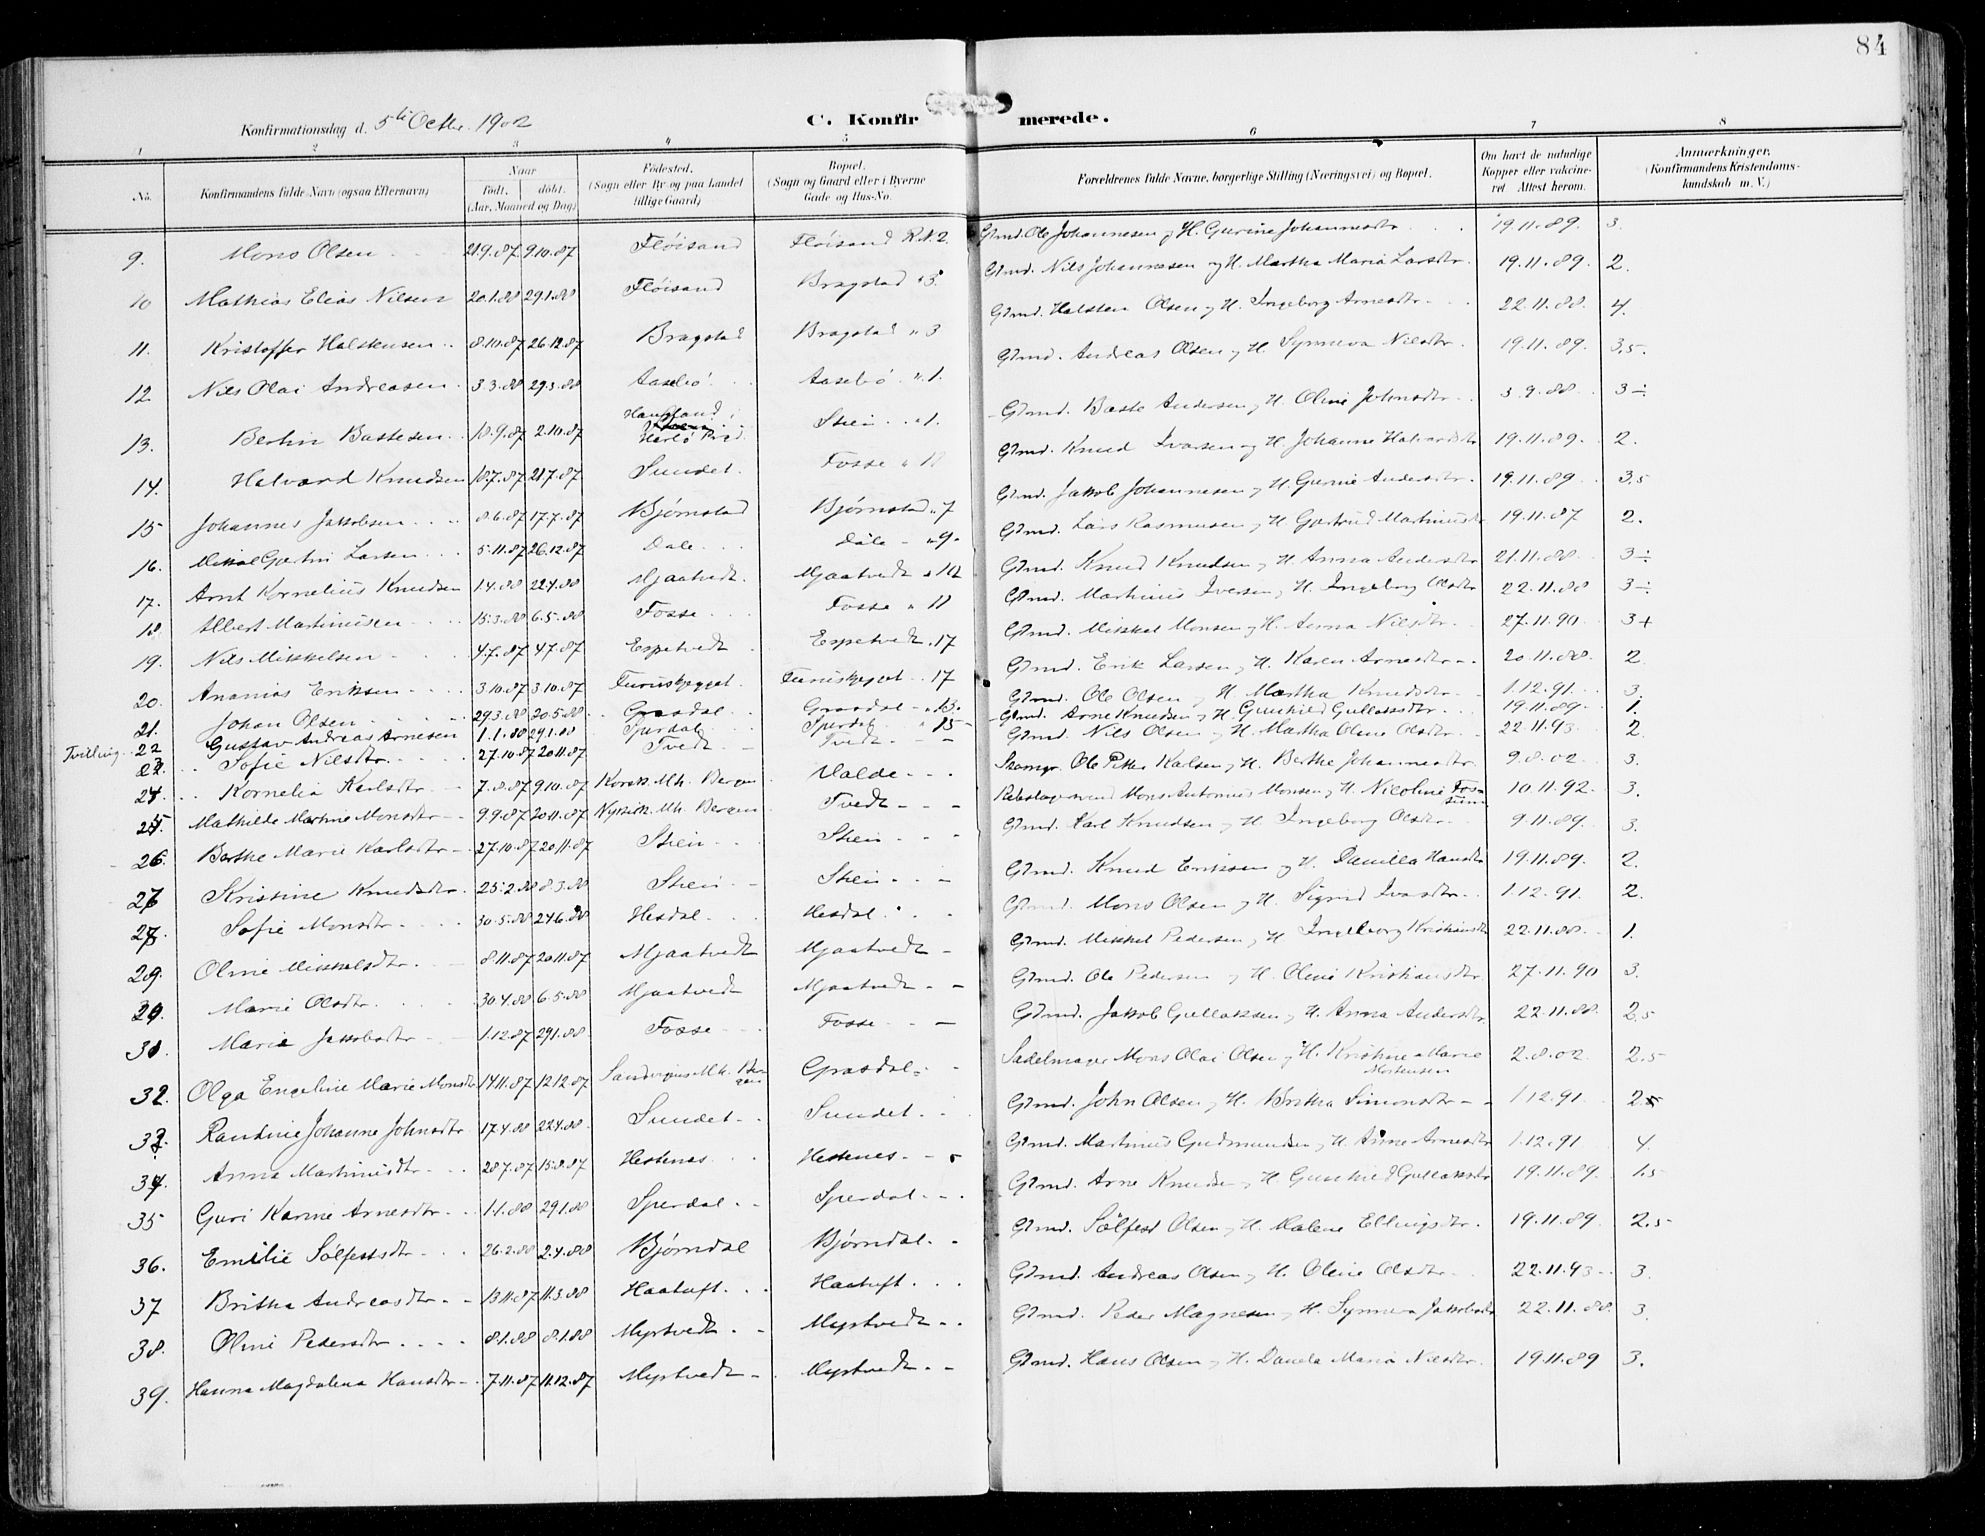 84
Konfirmationsdag d. 5te Octbr. 1902
C. Konfirmerede.
1 2 3 4 5 6 7 8
No. Konfirmandens fulde Navn (ogsaa Efternavn) Naar født, døbt. (Aar, Maaned og Dag) Fødested. (Sogn eller By og paa Landet tillige Gaard) Bopæl. (Sogn og Gaard eller i Byerne Gade og Hus-No. Forældrenes fulde Navne, borgerlige Stilling (Næringsvei) og Bopæl. Om havt de naturlige Kopper eller vakcineret. Attest herom. Anmærkninger. (Konfirmandens Kristendomskundskab m. V.)
9. Mons Olsen 21.9.87 9.10.87 Fløisand Fløisand R.N. 2. Gmd. Ole Johannesen og H. Gurine Johannesdtr. 19.11.89. 3.
10 Mathias Elias Nilsen 20.1.88 29.1.88 Fløisand Bragstad " 3. Gmd. Nils Johannesen og H. Martha Maria Larsdtr. 19.11.89. 2.
11. Kristoffer Halstensen 8.10.87 26.12.87 Bragstad Bragstad " 3 Gmd. Halsten Olsen og H. Ingeborg Arnesdtr. 22.11.88. 4.
12 Nils Olai Andreasen 3.3.88 29.3.88 Aasebø Aasebø " 1. Gmd. Andreas Olsen og H. Synneva Nilsdtr. 19.11.89. 3,5.
13. Bertin Bastesen 18.9.87 2.10.87 Haugland i Herlø Prd. Stien " 1. Gmd. Baste Andersen og H. Oline Johnsdtr. 3.9.88. 3÷
14. Halvard Knudsen 18.7.87 21.7.87 Sundet. Fosse " 11 Gmd. Knud Ivarsen og H. Johanne Halvardsdtr 19.11.89. 2.
15 Johannes Jakobsen 8.6.87 17.7.87 Bjørnstad Bjørnstad " 7 Gmd. Jakob Johannesen og H. Gurine Andersdtr. 19.11.89 3,5
16. Mikal Gertin Larsen 5.11.87 26.12.87 Dale Dale " 9. Gmd. Lars Rasmusen og H. Gjertrud Martinusdtr 19.11.87 2.
17. Arnt Kornelius Knudsen 1.4.88 22.4.88 Mjaatvedt. Mjaatvedt " 12 Gmd. Knud Knudsen og H. Anna Andersdtr 21.11.88. 3÷
18. Albert Martinusen 15.3.88 6.5.88 Fosse Fosse " 11 Gmd. Martinus Iversen og H. Ingeborg Olsdtr 22.11.88 3÷
19. Nils Mikkelsen 4.7.87 4.7.87 Espetvedt Espetvedt " 17 Gmd. Mikkel Monsen og H. Anna Nilsdtr. 27.11.90. 3+
20. Ananias Eriksen 3.10.87 3.10.87 Furuskjegget. Furuskjegget " 17 Gmd. Erik Larsen og H. Karen Arnesdtr. 20.11.88. 2.
21. Johan Olsen 29.3.88 20.5.88 Grasdal Grasdal " 13. Gmd. Ole Olsen og H. Martha Knudsdtr. 1.12.91. 3.
Tvilling. 22 Gustav Andreas Arnesen 1.1.88 29.1.88 Sperdal Sperdal " 15 Gmd. Arne Knudsen og H. Gunhild Gullaksdtr. 19.11.89. 1.
23. Sofie Nilsdtr. 27.10.87 20.11.87 Tvedt Tvedt Gmd. Nils Olsen og H. Martha Oline Olsdtr. 22.11.93. 2.
24 Kornelia Karlsdtr. 7.8.87 9.10.87 Korsk. Mh. Bergen Valde Skomgr. Ole Petter Karlsen og H. Berthe Johannesdtr. 9.8.02. 3.
25. Mathilde Martine Monsdtr. 9.9.87 20.11.87 Nykirk. Mh. Bergen Tvedt Rebslagersvend Mons Antonius Monsen og H. Nicoline Fossum 10.11.92. 3.
26. Berthe Marie Karlsdtr. 27.10.87 20.11.87 Stien Stien Gmd. Karl Knudsen og H. Ingeborg Olsdtr. 9.11.89. 3.
27 Kristine Knudsdtr. 25.2.88 8.3.88 Stien Stien Gmd. Knud Eriksen og H. Danilla Hansdtr 19.11.89. 2.
28. Sofie Monsdtr. 30.5.88 24.6.88 Hesdal Hesdal Gmd. Mons Olsen og H. Sigrid Ivarsdtr. 1.12.91. 2.
29. Oline Mikkelsdtr. 8.11.87 20.11.87 Mjaatvedt Mjaatvedt Gmd. Mikkel Pedersen og H. Ingeborg Kristiansdtr 22.11.88. 1.
30. Marie Olsdtr. 30.4.88 6.5.88 Mjaatvedt Mjaatvedt Gmd. Ole Pedersen og H. Oline Kristiansdtr. 27.11.90 3.
31. Maria Jakobsdtr 1.12.87 29.1.88 Fosse Fosse Gmd. Jakob Gullaksen og H. Anna Andersdtr. 22.11.88. 2,5
32. Olga Engeline Marie Monsdtr 14.11.87 12.12.87 Sandvigens Mh. Bergen Grasdal Sadelmager Mons Olai Olsen og H. Kristine Marie Mortensen 2.8.02. 2,5
33. Randine Johanne Johnsdtr 17.4.88 22.4.88 Sundet Sundet. Gmd. John Olsen og H. Britha Simonsdtr 1.12.91. 2,5
34. Anna Martinusdtr. 28.7.87 15.8.87 Hestenes Hestenes Gmd. Martinus Gudmundsen og H. Anne Arnesdtr 1.12.91 4.
35 Guri Karine Arnesdtr. 1.1.88 29.1.88 Sperdal Sperdal Gmd. Arne Knudsen og H. Gunhild Gullaksdtr 19.11.89. 1,5
36. Emilie Sølfestsdtr 26.2.88 2.4.88 Bjørndal Bjørndal Gmd. Sølfest Olsen og H. Malene Ellingsdtr. 19.11.89. 2,5
37 Britha Andreasdtr. 13.11.87 11.3.88 Haatuft Haatuft Gmd. Andreas Olsen og H. Oline Olsdtr. 22.11.93. 3.
38. Oline Pedersdtr 8.1.88 8.1.88 Myrtvedt Myrtvedt Gmd. Peder Magnesen og H. Synneva Jakobsdtr 22.11.88. 3.
39. Hanna Magdalena Hansdtr 7.11.87 11.12.87 Myrtvedt Myrtvedt Gmd. Hans Olsen og H. Daniela Maria Nilsdtr. 19.11.89 3.